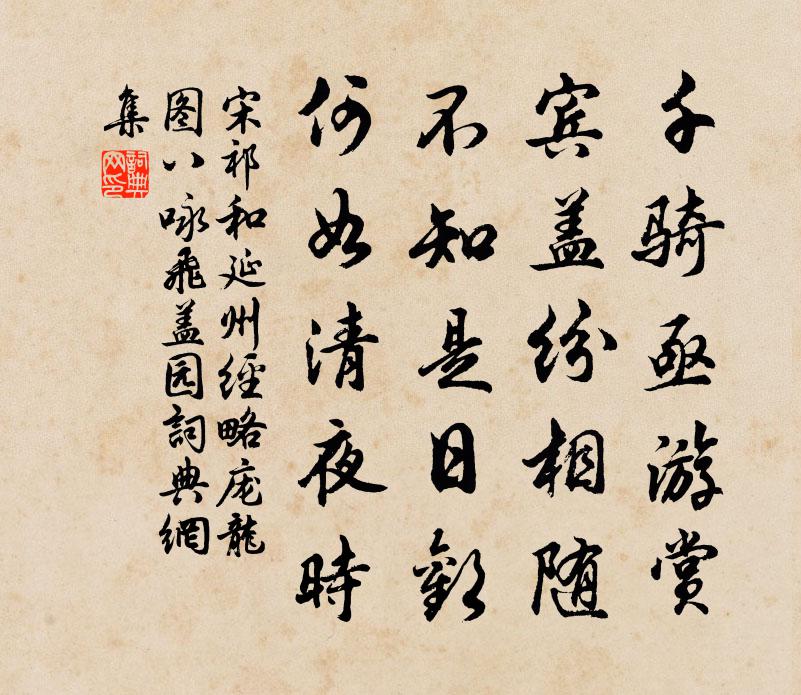 千骑亟游赏
宾盖纷相随
不知是日欢
何如清夜时
宋祁和延州经略庞龙
图八咏飞盖园詞典網
集
詞典
网印